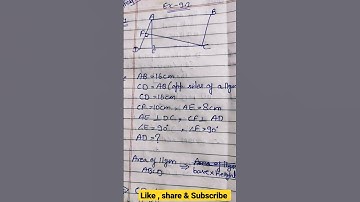 Ex-9.2
A
B
F
D
E
C
AB = 16cm
CD = AB (opp sides of a llgm
CD = 16cm
CF = 10cm, AE = 8cm
AE ⊥ DC, CF ⊥ AD
∠E = 90°, ∠F = 90°
AD = ?
Area of llgm ⇒ Area of llgm
ABCD base × height
Like , share & Subscribe